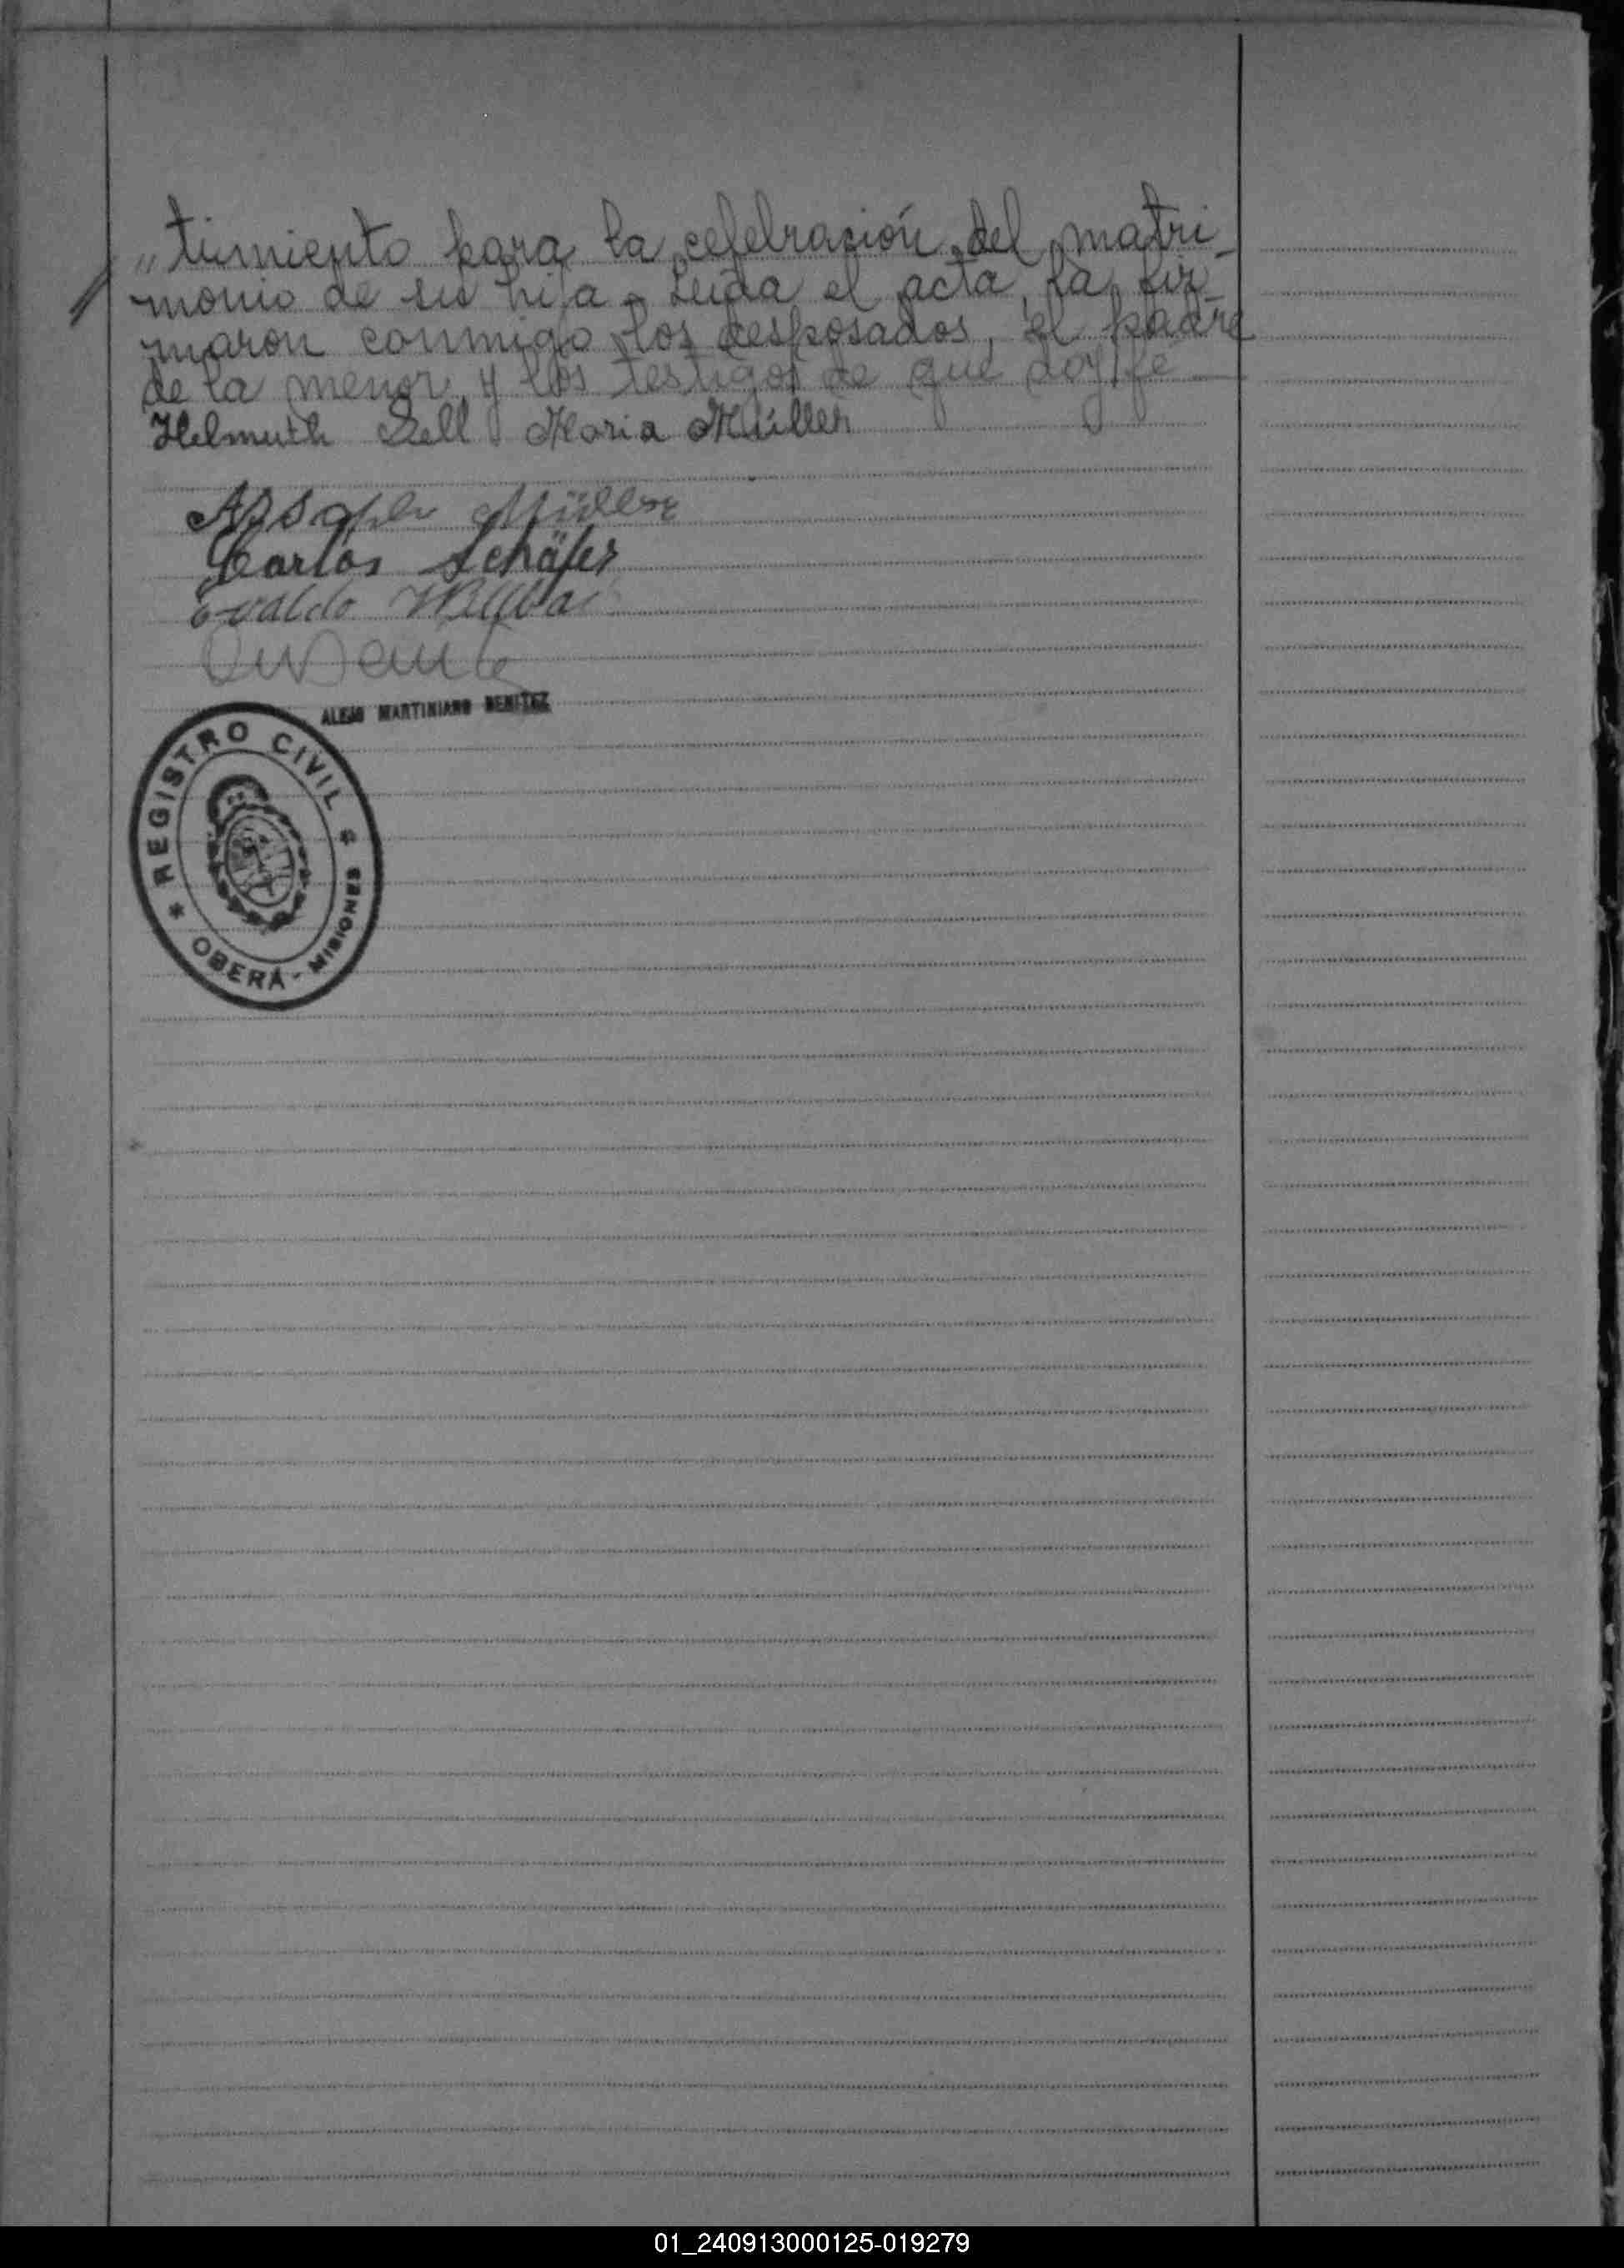 "timiento para la celebración del matri-
monio de su hija - Leida el acta, la fir-
maron conmigo los desposados, el padre
de la menor, y los testigos de que doy fe
Helmuth Zell Maria Müller
Müller
Carlos Schäfer
Evaldo
ALEJO MARTINIANO BENITEZ
* REGISTRO CIVIL *
OBERÁ - MISIONES
01_240913000125-019279